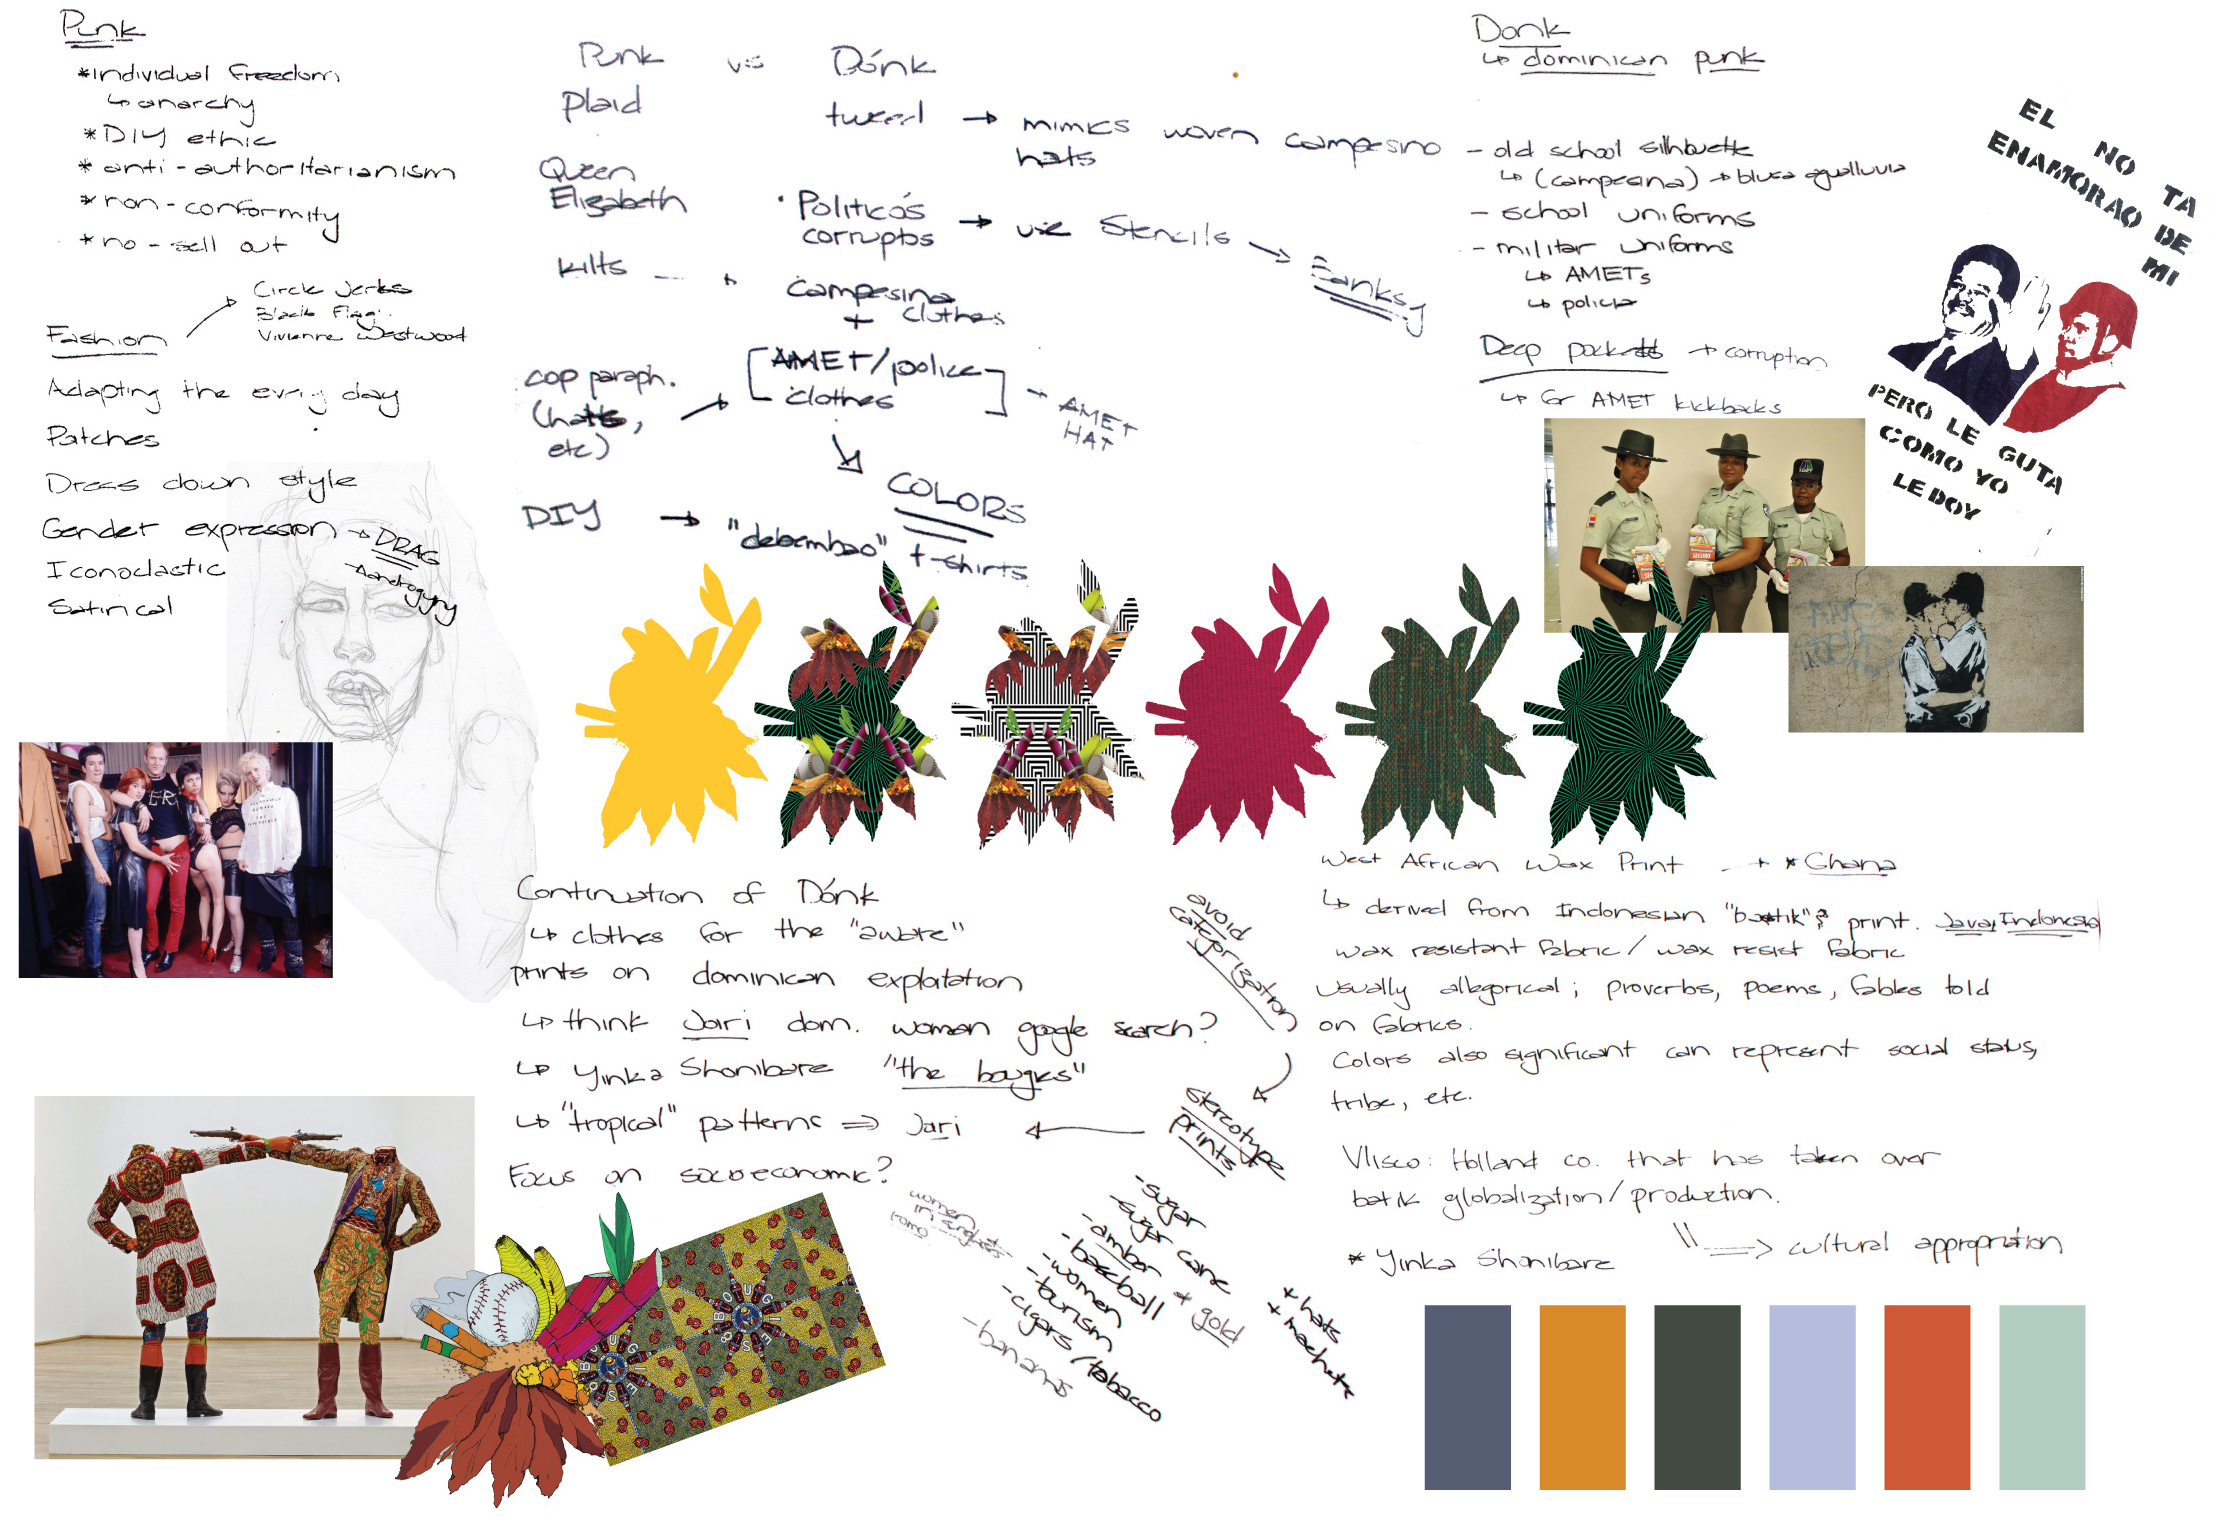 Punk
*individual freedom
↳ anarchy
*DIY ethic
*anti-authoritarianism
*non-conformity
*no-sell out
Circle Jerks
Black Flag
Vivienne Westwood
Fashion
Adapting the every day
Patches
Dress down style
Gender expression → DRAG
Androgyny
Iconoclastic
Satirical
Punk vs Dónk
plaid
tweed → mimics woven campesino
hats
Queen
Elizabeth
Politicos
corruptos → use Stencils → Banksy
kilts → campesina
+ clothes
cop paraph.
(hats,
etc)
[AMET/police
clothes] → AMET
HAT
COLORS
DIY → "debembao"
t-shirts
Donk
↳ dominican punk
- old school silhouette
↳ (campesina) → blusa
- school uniforms
- militar uniforms
↳ AMETs
↳ policia
Deep pockets → corruption
↳ for AMET kickbacks
EL NO TA
ENAMORAO DE
MI
PERO LE GUTA
COMO YO
LE DOY
SEGURO
ER
Continuation of Dónk
↳ clothes for the "aware"
prints on dominican exploitation
↳ think Jari dom. woman google search?
↳ Yinka Shonibare "the bougies"
↳ "tropical" patterns ⇒ Jari
Focus on socioeconomic?
avoid
categorization
stereotype
prints
women
in
- sugar
- sugar cane
- amber + gold
- baseball
- women
- tourism
- cigars/tobacco
- bananas
+ hats
+ machete
BOUGIES
BOUGIES
West African Wax Print → * Ghana
↳ derived from Indonesian "batik"; print. Java, Indonesia
wax resistant fabric / wax resist fabric
usually allegorical; proverbs, poems, fables told
on fabrics.
Colors also significant can represent social status,
tribe, etc.
Vlisco: Holland co. that has taken over
batik globalization/production.
⇒ cultural appropriation
* Yinka Shonibare